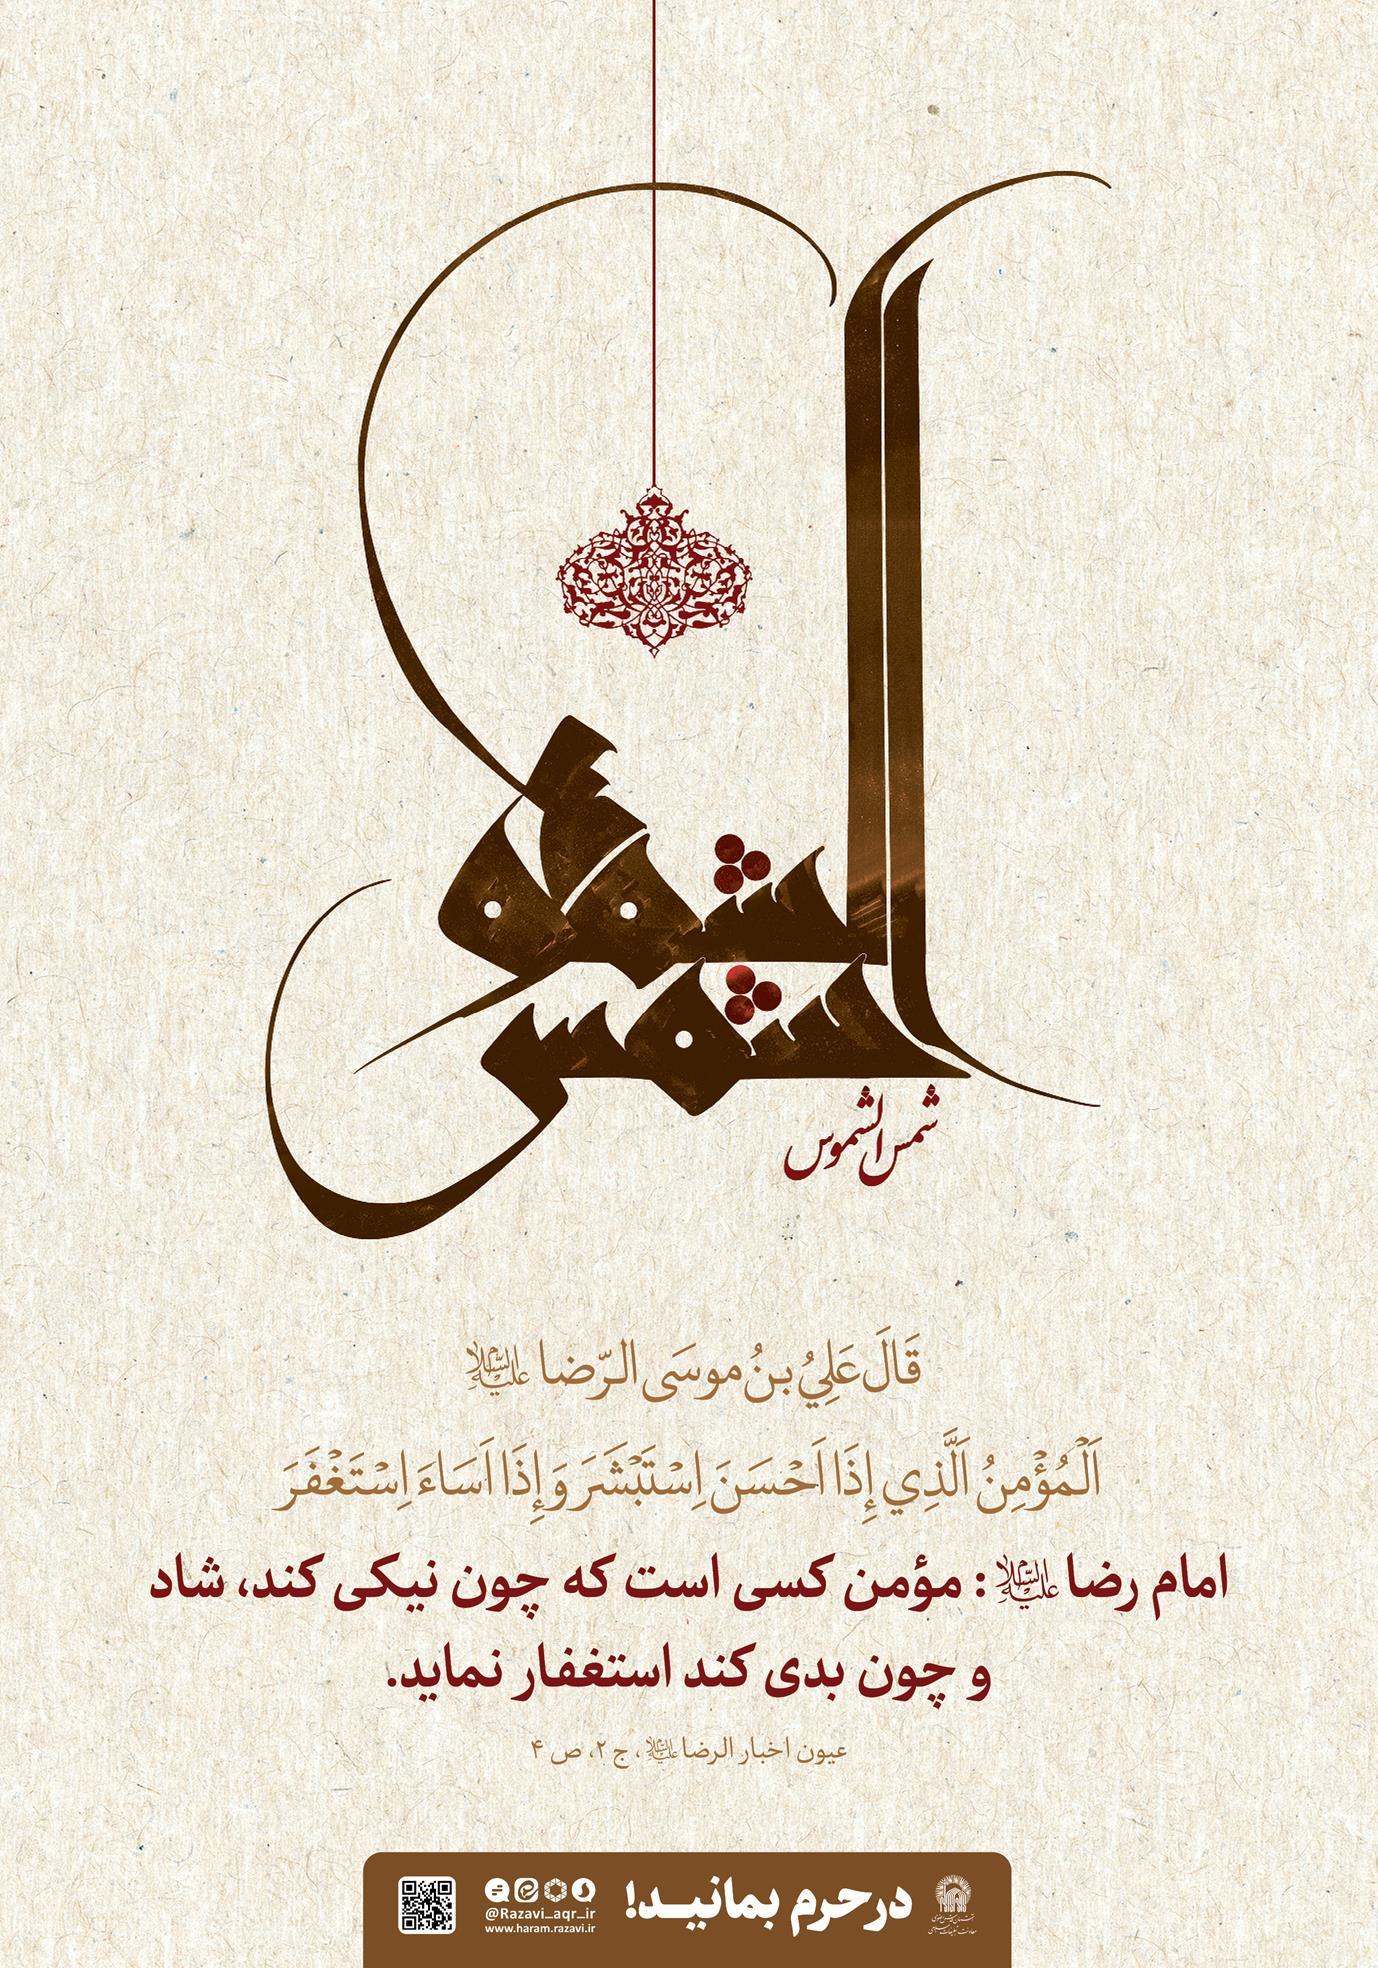 شمس الشموس
شمس الشموس
قَالَ عَلِيُ بنُ موسَى الرّضا علیه السلام
اَلْمُؤْمِنُ اَلَّذِي إِذَا اَحْسَنَ اِسْتَبْشَرَ وَ إِذَا اَسَاءَ اِسْتَغْفَرَ
امام رضا علیه السلام: مؤمن کسی است که چون نیکی کند، شاد
و چون بدی کند استغفار نماید.
عیون اخبار الرضا علیه السلام، ج ۲، ص ۴
در حرم بمانید!
@Razavi_aqr_ir
www.haram.razavi.ir